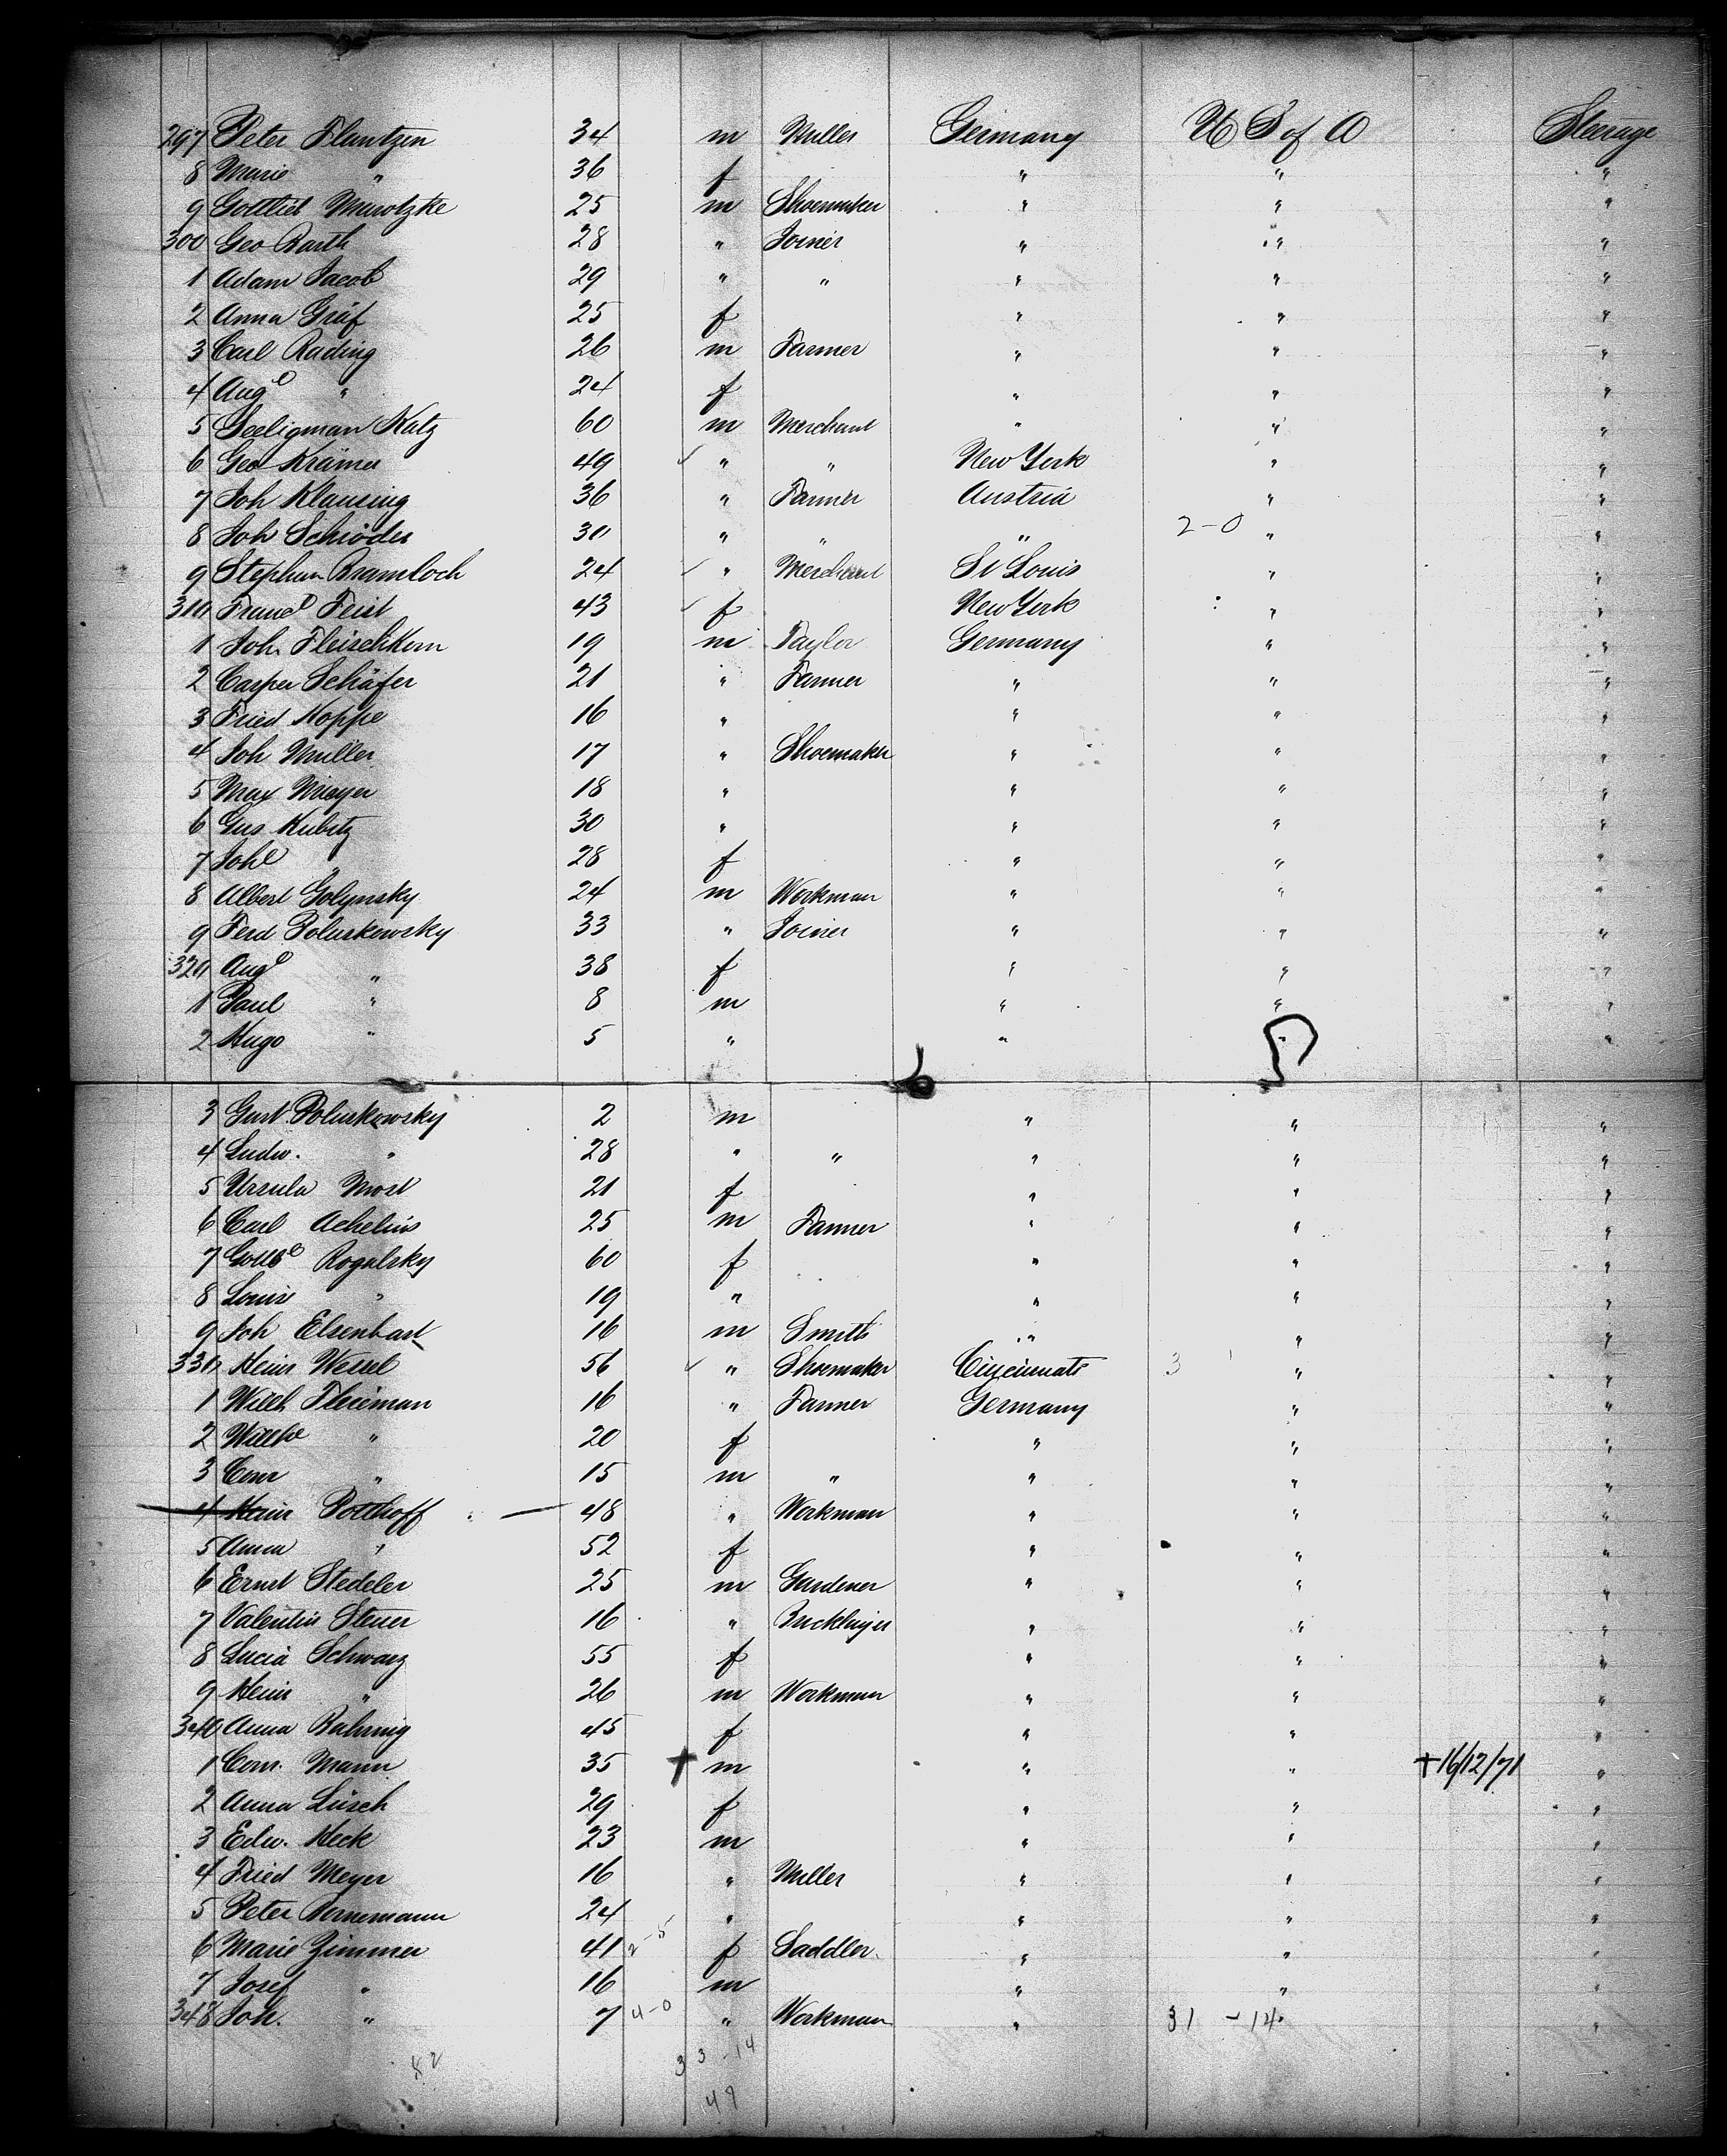 297 Peter Flantzen 34 m Miller Germany U S of A Steerage
8 Marie " 36 f " " "
9 Gottlieb Murotzke 25 m Shoemaker " " "
300 Geo Barth 28 " Joiner " " "
1 Adam Jacob 29 " " " " "
2 Anna Gräf 25 f " " "
3 Carl Rading 26 m Farmer " " "
4 Auge " 24 f " " "
5 Seeligman Katz 60 m Merchant " " "
6 Geo Krämer 49 ✓ " " New York " "
7 Joh Klausing 36 " Farmer Austria " "
8 Joh Schröder 30 " " " 2-0 " "
9 Stephan Bramloch 24 ✓ " Merchant St Louis " "
310 Feist 43 ✓ f New York " "
1 Joh. Fleischkorn 19 m Taylor Germany " "
2 Casper Schäfer 21 " Farmer " " "
3 Fried Hoppe 16 " " " "
4 Joh Müller 17 " Shoemaker " " "
5 Max Mieyer 18 " " " "
6 Gus Kubitz 30 " " " "
7 Johe " 28 f " " "
8 Albert Golynsky 24 m Workman " " "
9 Ferd Poluskowsky 33 " Joiner " " "
320 Auge " 38 f " " "
1 Paul " 8 m " " "
2 Hugo " 5 " " " "
3 Gust. Poluskowsky 2 m " " "
4 Ludw. " 28 " " " " "
5 Ursula Most 21 f " " "
6 Carl Achelius 25 m Farmer " " "
7 Rogalsky 60 f " " "
8 Louise " 19 " " " "
9 Joh Elsenbast 16 m Smith " " "
330 Heinr Wessel 56 ✓ " Shoemaker Cincinnati 3 " "
1 Wilh Fleieman 16 " Farmer Germany " "
2 Wilhe " 20 f " " "
3 Conr " 15 m " " " "
4 Heinr Potthoff 48 " Workman " " "
5 Anna " 52 f " " "
6 Ernst Stedeler 25 m Gardener " " "
7 Valentin Steuer 16 " " " "
8 Lucia Schwarz 55 f " " "
9 Heinr " 26 m Workman " " "
340 Anna Bähring 45 f " " "
1 Conr. Mann 35 + m " " +16/12/71 "
2 Anna Lüsch 29 f " " "
3 Edw. Heck 23 m " " "
4 Fried Meyer 16 " Miller " " "
5 Peter Bornemann 24 " " " "
6 Marie Zimmer 41 2-5 f Saddler " " "
7 Josef " 16 m " " "
348 Joh. " 7 4-0 " Workman " 31 -14 "
82 33-14
49